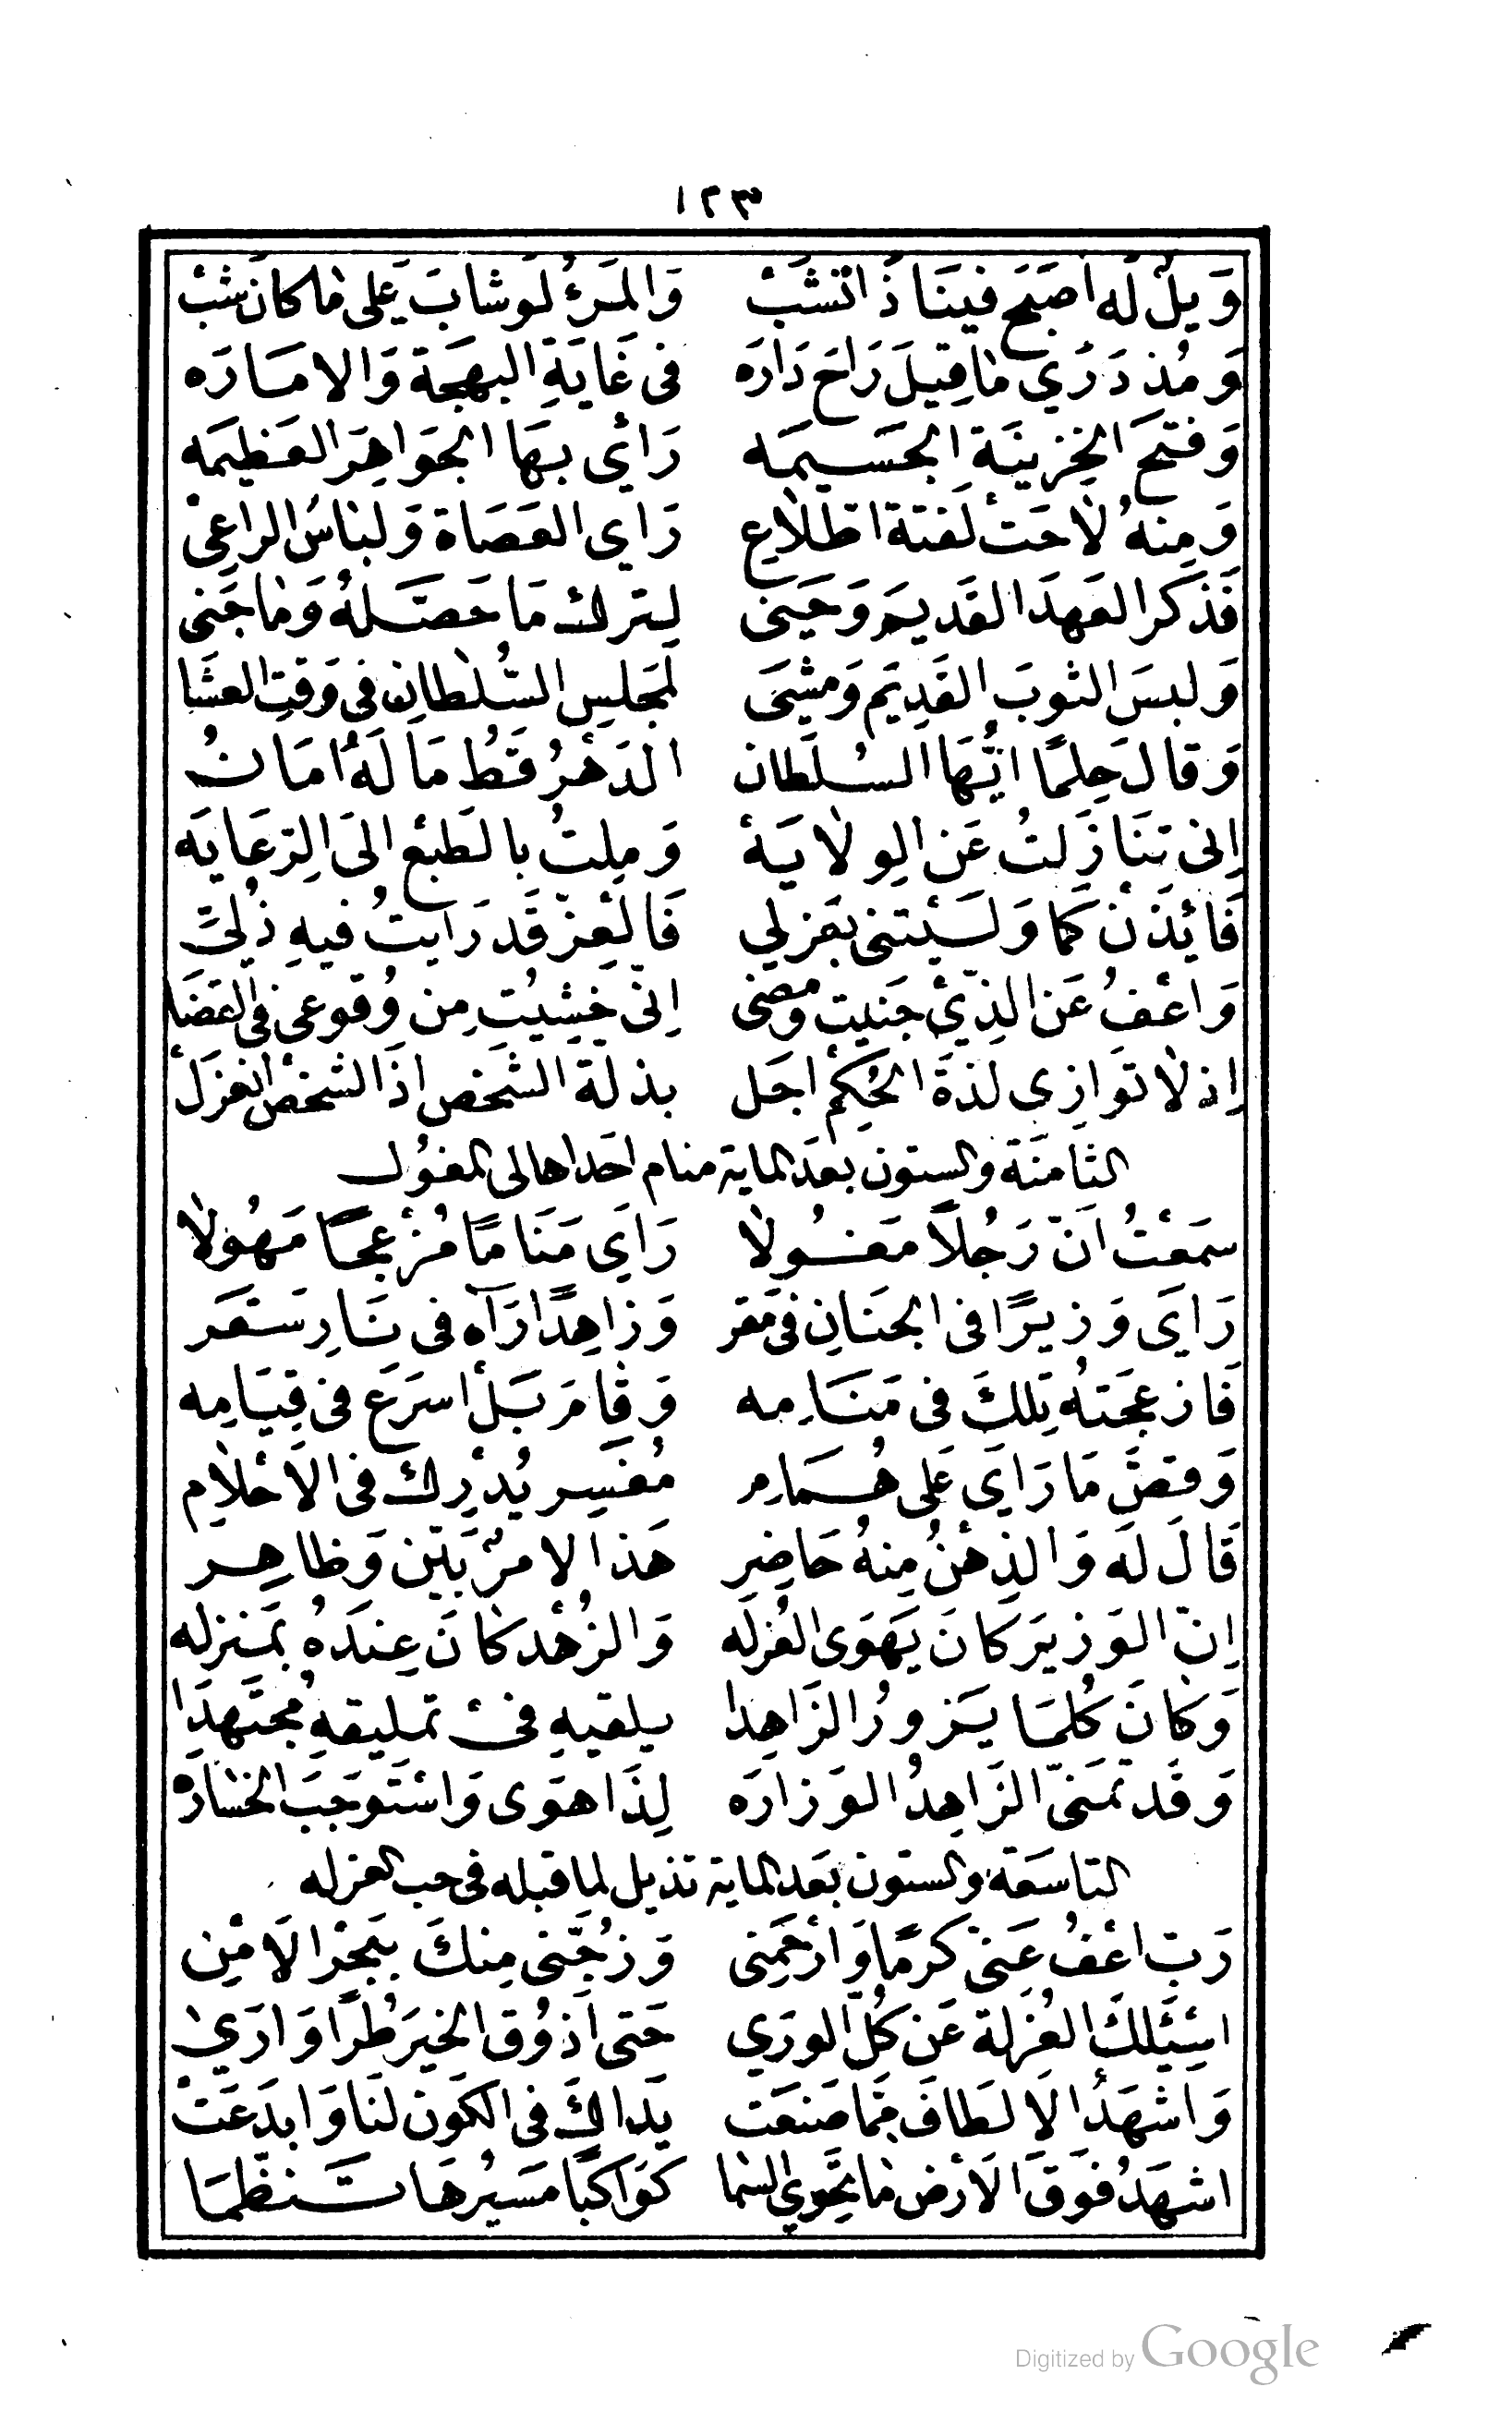 ١٢٣
وَيلٌ لَه اَصبَحَ فينَا ذَا تشَبْ وَالمَرءُ لَوشابَ عَلى ما كان شبْ
وَمُذ دَرَي ما قِيلَ رَاحَ دَارَه فى غَايَةِ البهجَة وَالامَارَه
وَفتحَ الخِزينَةِ الجَسَيمَه رَاي بهَا الجَوَاهِرَ العَظيمَه
وَمِنهُ لاحَتْ لَفتة اطلاعِ رَاي العَصَاة وَلباسُ الراعِى
فَذكرالعَهدَ القَديمَ وَحَينى لِترك مَا حَصَّلهُ وَما جَنى
وَلبسَ الثوبَ القَدِيَم وَمشىَ لمَجلِسِ السُّلطانِ فى وَقتِ العشَا
وَقالَ حِلمًا ايُّهَا السُلَطان الدَهرُ قَطُ مَا لَهُ امَانُ
اِنى تنَازَلتُ عَن الِولايَة وَمِلتُ بالطَبْع الىَ الرِعَايَه
فَائْذَنْ كَما وَلَيْتنى بعَزلي فَالعِزّ قَد رَايتُ فيهِ ذُليَّ
وَاعْفُ عَن الذِّيْ جَنيت ومضى اِنّى خَشِيْتِ مِن وُقوعى فىِ القضَا
اِذ لا تَوازِى لذةَ الحُكِمْ اجَل بذلة الشَخص اذَا الشخصْ انعزَلْ
الثَامنَة والستون بعدَ الماية منام احَد اهالى المغول
سَمَعْتُ اَنّ رَجُلاً مَغُولا رَاَى مَنَامًا مُزْعجًا مَهُولا
رَايَ وَزيرًا فى الجنَانِ فى مَقر وَزاهِدًا رَآه فى نَارِ سَقَر
فَازعجَتهُ تِلكَ فى مَنَامِه وَقامَ بَلْ اسرَع فى قِيَامِه
وَقصَّ مَا رَايَ عَلى هُمَامِ مُفَسِرٍ يُدْرِك فى الاَحْلاِم
قَالَ لَه وَالذِهنُ مِنهُ حَاضِر هَذا الامرُ بَيّن وَظاهِر
اِنّ الوَزيرَ كانَ يَهوَى العُزلَه وَالزُهْد كانَ عِندَهُ بمَنزِله
وَكانَ كُلمَا يَزورُ الزَاهِدا يلقيهِ فىْ تمليقهِ مُجتَهِدَا
وَقَد تمَنىّ الزَاهِدُ الوَزارَه لِذَا هَوَى وَاسْتَوجَبَ الخسارَه
التاسَعَة والستون بعَد الماية تذييل لما قبله فى حب العزله
رَبّ اعْفُ عَنى كَرَمًا وَارْحَمِنى وَزُجّنى مِنكَ بِبَحْر الاَمْنِ
اسْئَلكَ العُزلَة عَن كُلّ الورَي حَتى اَذوُق الخيرَ طُرًا وَارَيْ
وَاشهَدُ الاَلطافَ مّما صَنعَت يَداكَ فى الكَون لنَا وَابدَعَتْ
اشهَدُ فوَقَ الاَرْض ما تَحِوي السَما كوَاكبًا مَسيُرهَا تَنظّمَا
Digitized by Google